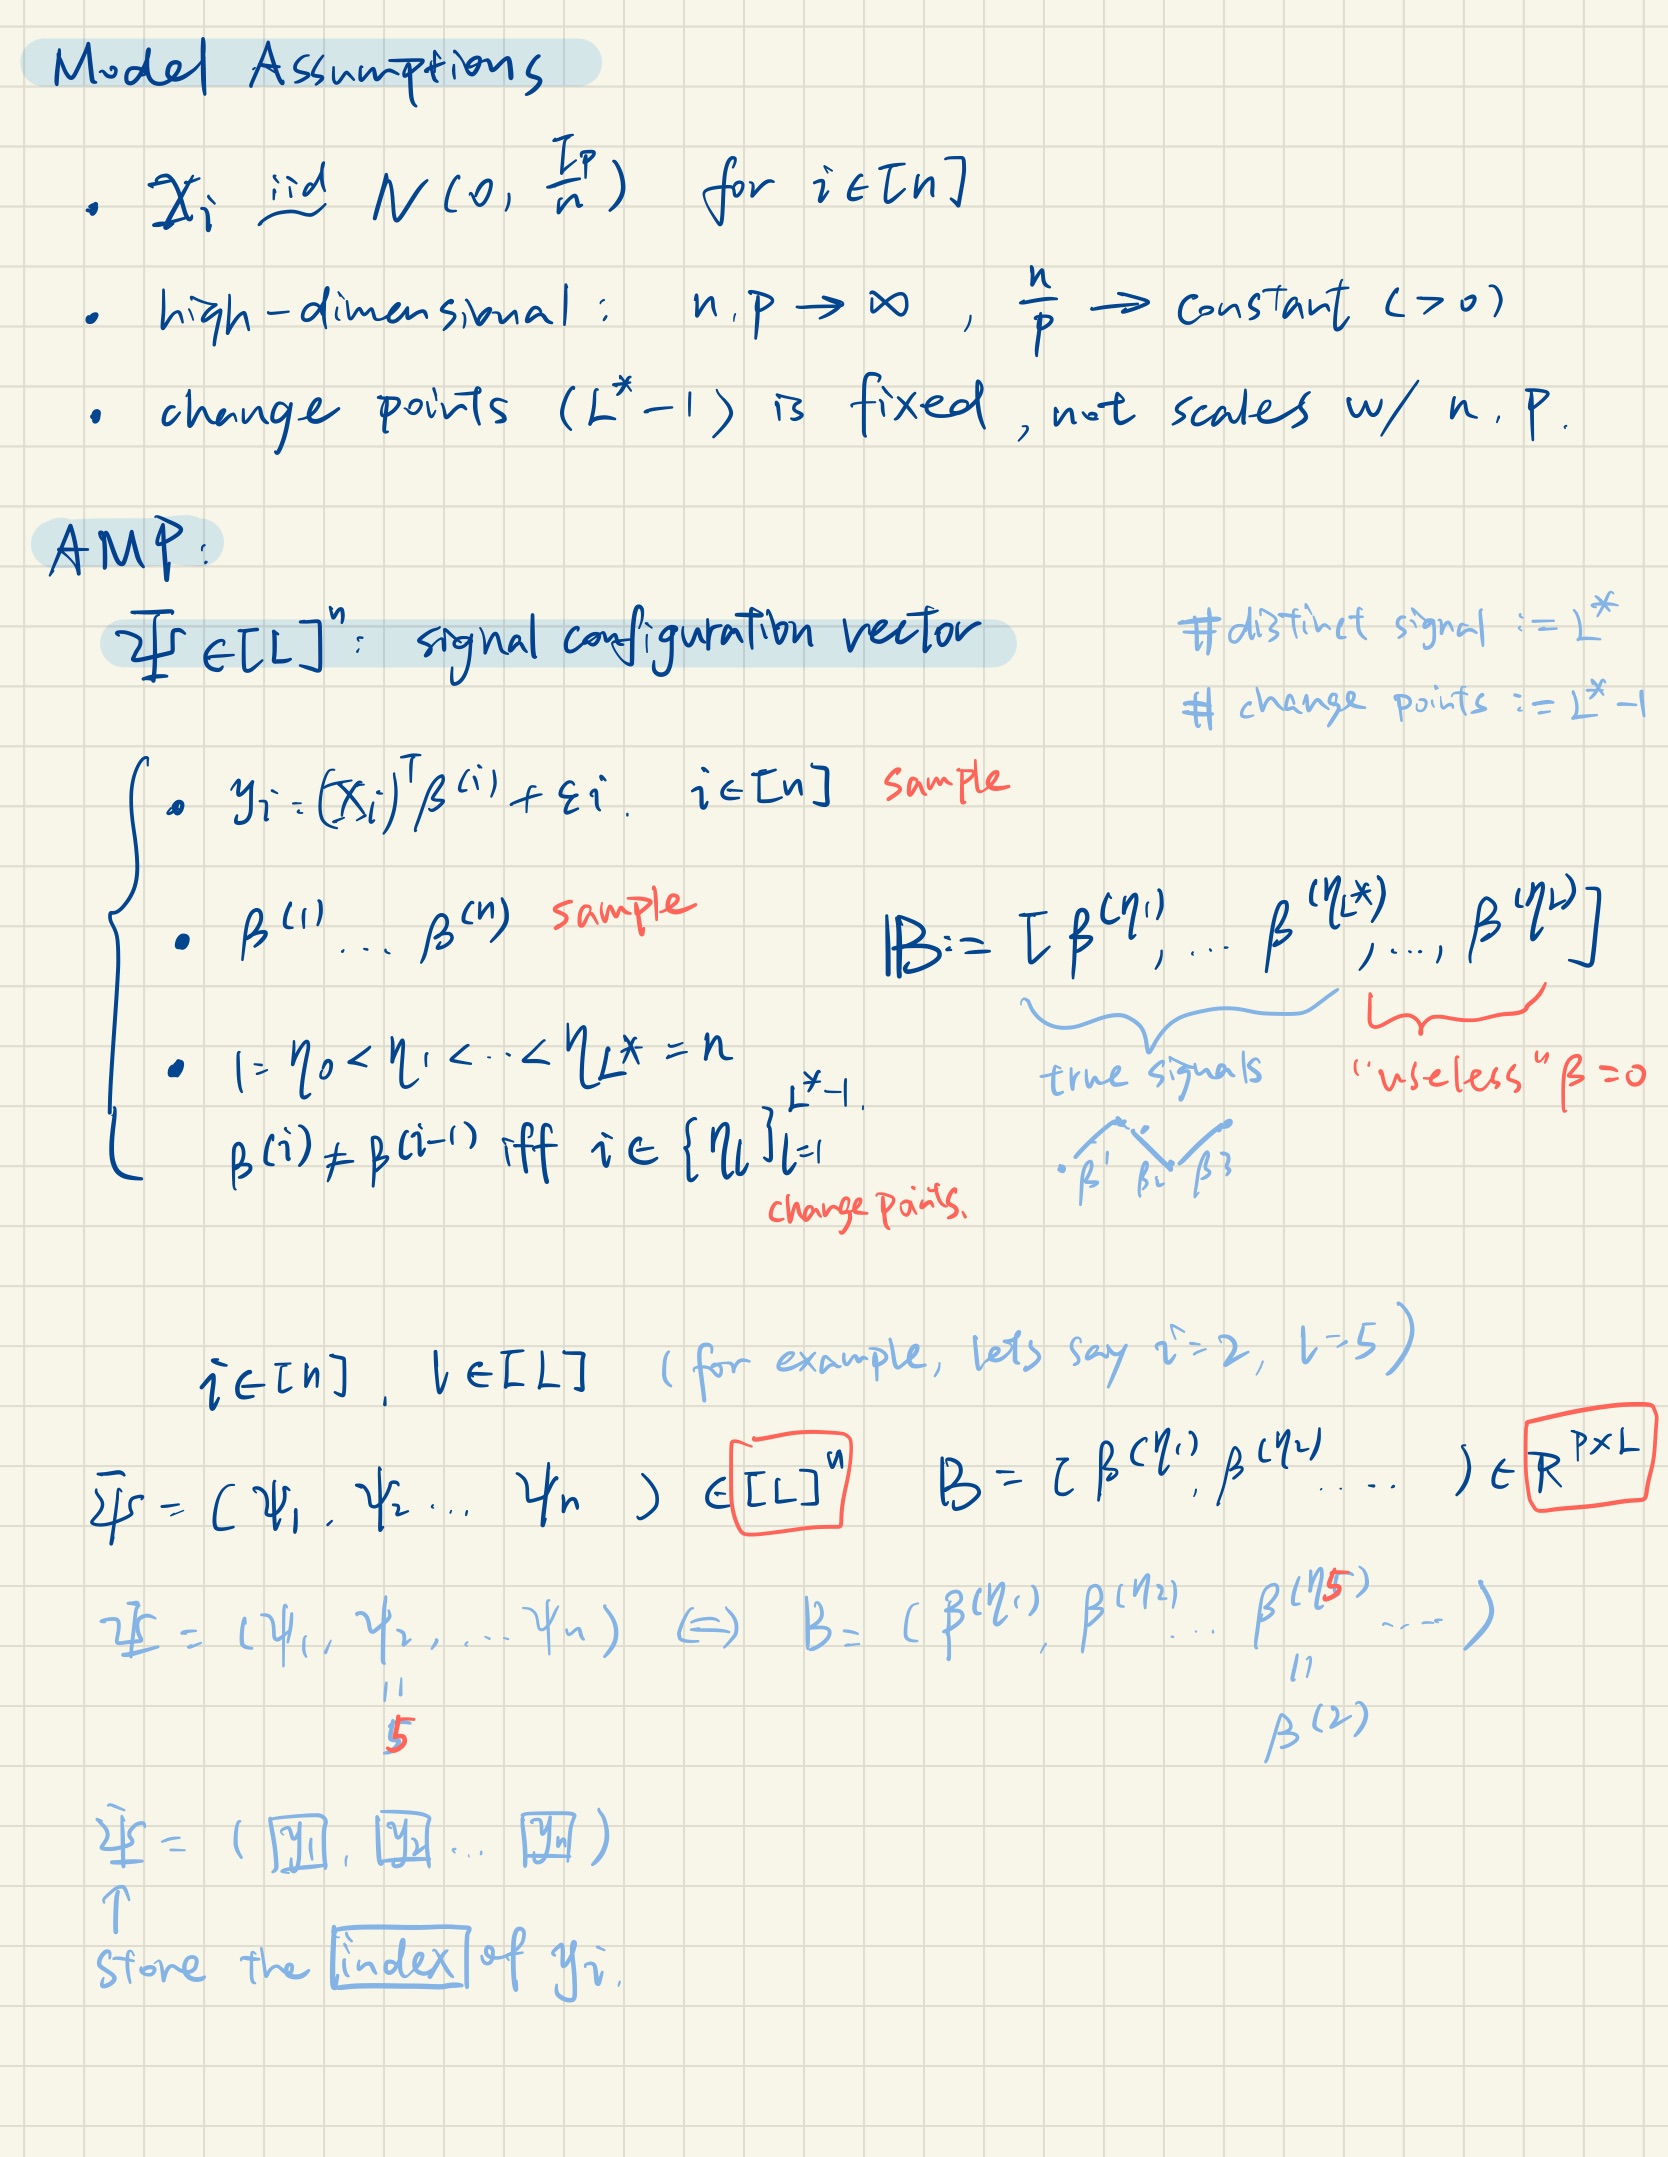 Model Assumptions
• X_i iid~ N(0, I_p/n) for i∈[n]
• high-dimensional: n,p → ∞, n/p → constant (>0)
• change points (L*-1) is fixed, not scales w/ n,p.
AMP:
Ψ ∈ [L]^n: signal configuration vector
# distinct signal := L*
# change points := L*-1
• y_i = (X_i)^T β^(i) + ε_i. i∈[n] sample
• β^(1) ... β^(n) sample
𝔹 := [β^(η_1), ... β^(η_L*), ..., β^(η_L)]
true signals "useless" β=0
• 1 = η_0 < η_1 < ... < η_L* = n
β^(i) ≠ β^(i-1) iff i ∈ {η_l}_{l=1}^{L*-1}.
β^1 β_2 β^3
change points.
i∈[n], l∈[L] (for example, lets say i=2, l=5)
Ψ = (ψ_1, ψ_2 ... ψ_n) ∈ [L]^n B = [β^(η_1), β^(η_2) .....) ∈ R^{p×L}
Ψ = (ψ_1, ψ_2, ... ψ_n) ⇔ B = (β^(η_1), β^(η_2) ... β^(η_5) ....)
= =
5 β^(2)
Ψ = (y_1, y_2 ... y_n)
↑
store the index of y_i.